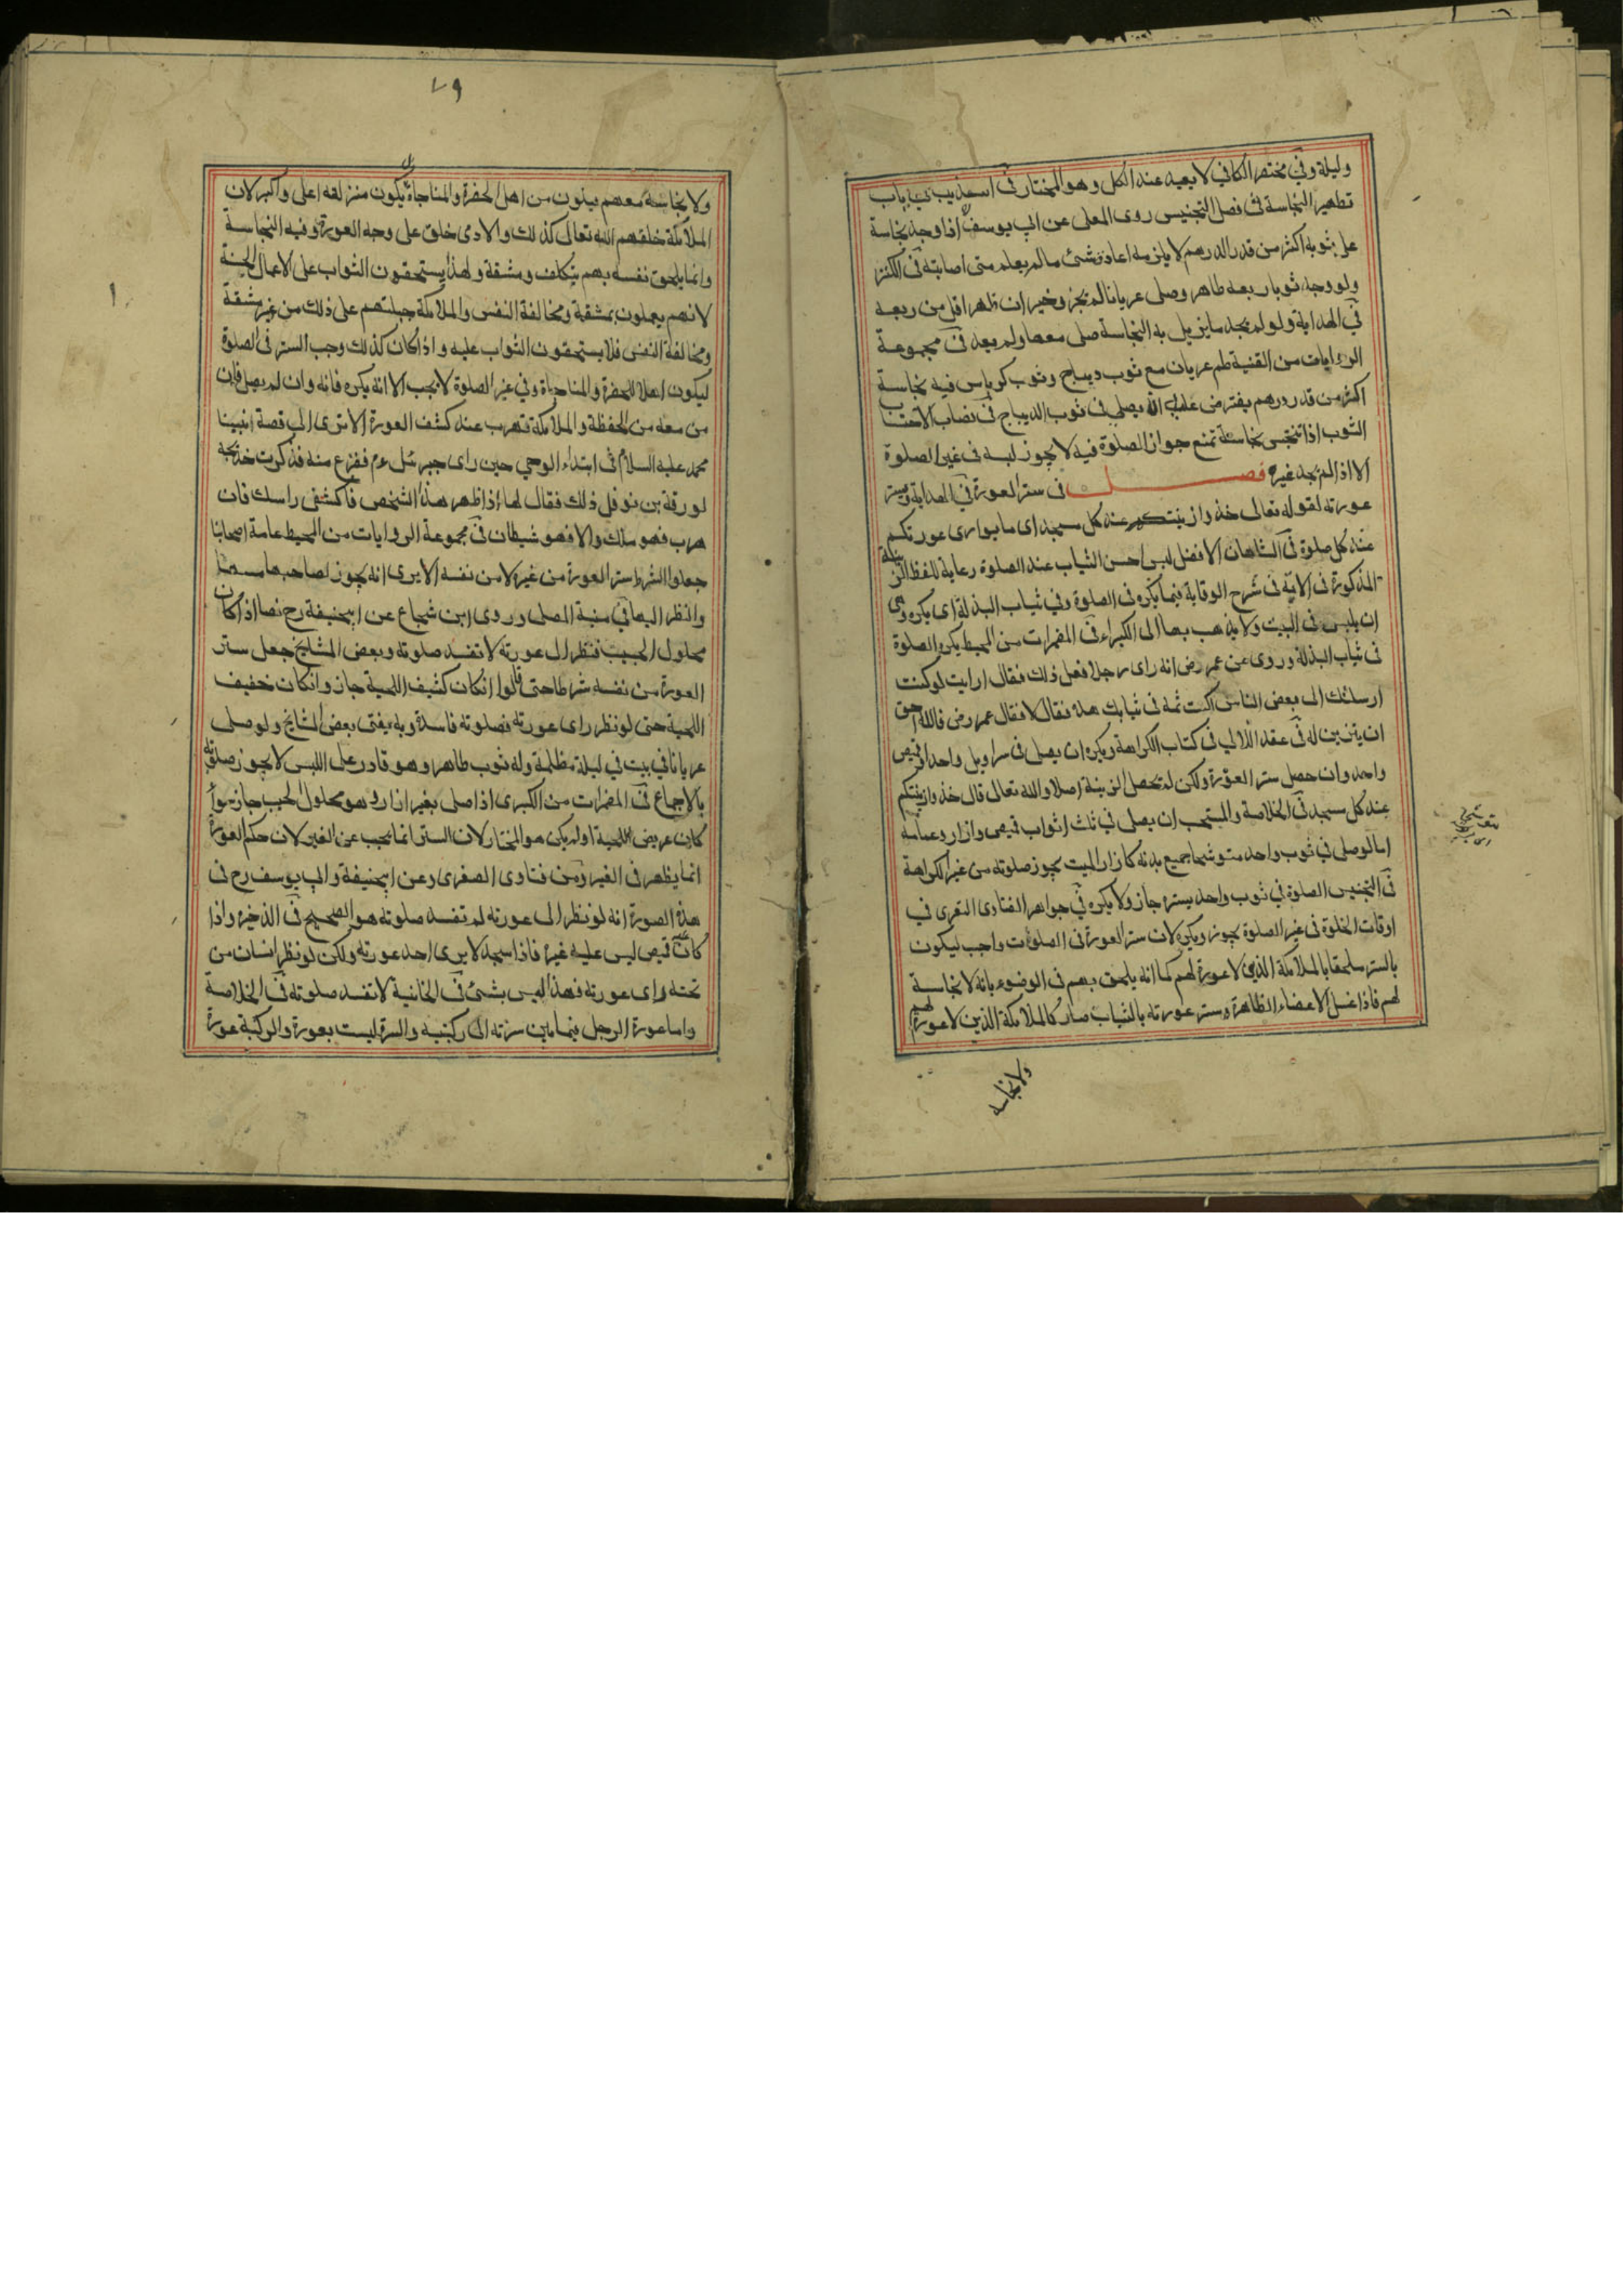 وليلة وفي مختصر الكافي لا يعيد عند الكل وهو المختار في باب
تطهير النجاسة في فصل التجنيس روى المعلى عن ابي يوسف اذا وجد نجاسة
على ثوبه اكثر من قدر الدرهم لا يلزمه اعادة شئ ما لم يعلم متى اصابته في الكنز
ولو وجد ثوبا ربعه طاهر وصلى عريانا لم تجز وخير ان طهر اقل من ربعه
في الهداية ولو لم يجد ما يزيل به النجاسة صلى معها ولم يعد في مجموعة
الروايات من القنية طم عريان مع ثوب ديباج وثوب كرباس فيه نجاسة
اكثر من قدر درهم يفترض عليه ان يصلي في ثوب الديباج في نصاب الاحتساب
الثوب اذا تنجس بنجاسة تمنع جواز الصلوة فيه لا يجوز لبسه في غير الصلوة
الا اذا لم يجد غيره فصل في ستر العورة في الهداية ويستر
عورته لقوله تعالى خذوا زينتكم عند كل مسجد اى ما يوارى عورتكم
عند كل صلوة في الشاهان الافضل لبس احسن الثياب عند الصلوة رعاية للفظ الزينة
المذكورة في الاية في شرح الوقاية فيما يكره في الصلوة وفي ثياب البذلة اى يكره وهى
ان يلبس في البيت ولا يذهب بها الى الكبراء في المضمرات من المحيط يكره الصلوة
في ثياب البذلة وروى عن عمر رض انه راى رجلا فعل ذلك فقال ارايت لو كنت
ارسلتك الى بعض الناس اكنت تمر في ثيابك هذه فقال لا فقال عمر رض فالله احق
ان يتزين له في عقد اللآلي في كتاب الكراهة ويكره ان يصلى في سراويل واحد او قميص
واحد وان حصل ستر العورة ولكن لم تحصل الزينة اصلا والله تعالى قال خذوا زينتكم
عند كل مسجد في الخلاصة والمستحب ان يصلى في ثلث اثواب قميص وازار وعمامة
اما لو صلى في ثوب واحد متوشحا جميع بدنه كازار الميت يجوز صلوته من غير الكراهة
في التجنيس الصلوة في ثوب واحد يستره جاز ولا يكره في جواهر الفتاوى التعرى في
اوقات الخلوة في غير الصلوة يجوز ويكره لان ستر العورة في الصلوات واجب ليكون
بالستر ملحقا بالملائكة الذين لا عورة لهم كما انه يلحق بهم في الوضوء بانه لا نجاسة
لهم فاذا غسل الاعضاء الظاهرة وستر عورته بالثياب صار كالملائكة الذين لا عورة لهم
ولا نجاسة
٧٩
ولا نجاسة معهم فيكون من اهل الحضرة والمناجاة بل يكون منزلته اعلى واكبر لان
الملائكة خلقهم الله تعالى كذلك والادمى خلق على وجه العورة وفيه النجاسة
وانما يلحق نفسه بهم بتكلف ومشقة ولهذا يستحقون الثواب على الاعمال الحسنة
لانهم يعملون بمشقة ومخالفة النفس والملائكة جبلتهم على ذلك من غير مشقة
ومخالفة النفس فلا يستحقون الثواب عليه واذا كان كذلك وجب الستر في الصلوة
ليكون اهلا للحضرة والمناجاة وفي غير الصلوة لا يجب الا انه يكره فانه وان لم يصل فان
من معه من الحفظة والملائكة تهرب عند كشف العورة الا ترى الى قصة نبينا
محمد عليه السلام في ابتداء الوحي حين راى جبرئيل عم ففزع منه فذكرت خديجة
لورقة بن نوفل ذلك فقال لها اذا ظهر هذا الشخص فاكشفى راسك فان
هرب فهو ملك والا فهو شيطان في مجموعة الروايات من المحيط عامة اصحابنا
جعلوا الشرط ستر العورة من غيره لا من نفسه الا يرى انه يجوز لصاحبها مسها
والنظر اليها في منية المصلى وروى ابن شجاع عن ابيحنيفة رح نصا اذا كان
محلول الجيب فنظر الى عورته لا تفسد صلوته وبعض المشايخ جعل ستر
العورة من نفسه شرطا حتى قالوا ان كان كثيف اللحية جاز وان كان خفيف
اللحية حتى لو نظر راى عورته فصلوته فاسدة وبه يفتى بعض المشايخ ولو صلى
عريانا في بيت في ليلة مظلمة وله ثوب طاهر وهو قادر على اللبس لا يجوز صلوته
بالاجماع في المضمرات من الكبرى اذا صلى بغير ازار وهو محلول الجيب جاز سواء
كان عريض اللحية او لم يكن هو المختار لان الستر انما يجب عن الغير لان حكم العورة
انما يظهر في الغير ومن فتاوى الصغرى وعن ابيحنيفة وابي يوسف رح في
هذه الصورة انه لو نظر الى عورته لم تفسد صلوته هو الصحيح في الذخيرة واذا
كان عليه قميص ليس عليه غيره فاذا سجد لا يرى احد عورته ولكن لو نظر انسان من
تحته راى عورته فهذا ليس بشئ في الخانية لا تفسد صلوته في الخلاصة
واما عورة الرجل فيما بين سرته الى ركبتيه والسرة ليست بعورة والركبة عورة